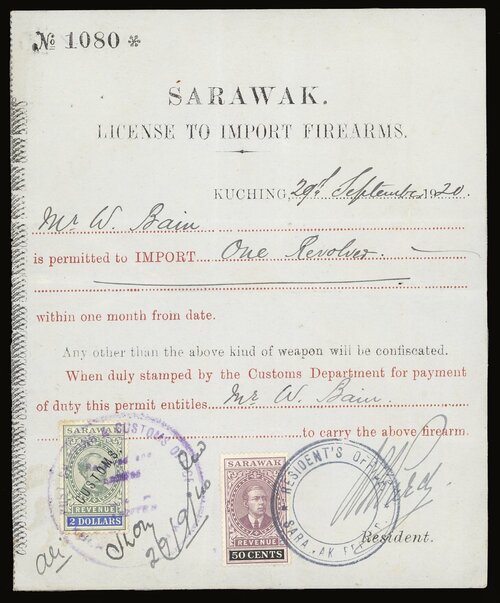 № 1080 *
SARAWAK.
LICENSE TO IMPORT FIREARMS.
KUCHING, 29th September 1920.
Mr W. Bain
is permitted to IMPORT One Revolver
within one month from date.
Any other than the above kind of weapon will be confiscated.
When duly stamped by the Customs Department for payment
of duty this permit entitles Mr W. Bain
to carry the above firearm.
SARAWAK
CUSTOMS
REVENUE
2 DOLLARS
& CUSTOMS
29/9/20
SARAWAK
REVENUE
50 CENTS
RESIDENT'S OFFICE
SARAWAK
Resident.